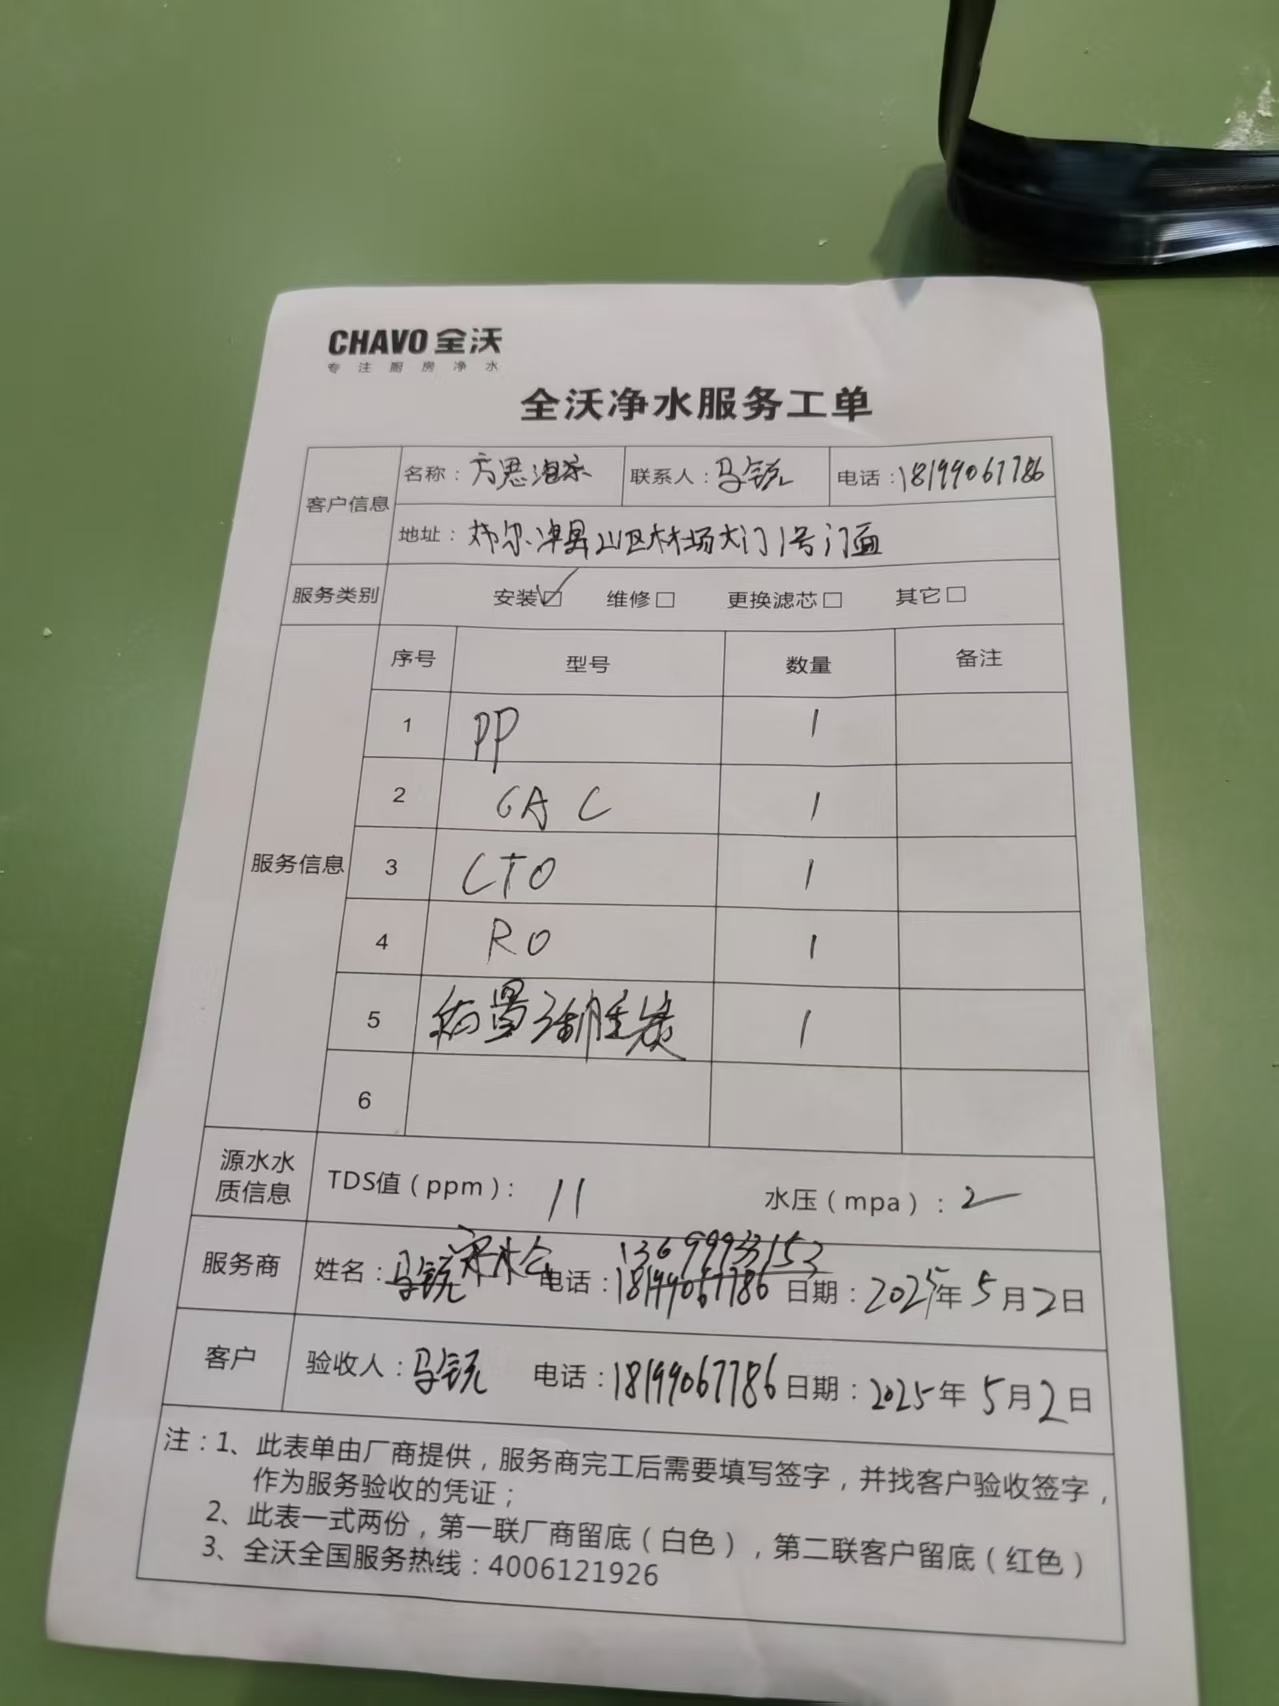 CHAVO 全沃
专注厨房净水
全沃净水服务工单
客户信息
名称： 方思
联系人：马锐
电话：18199067786
地址： 布尔津县山区林场大门1号门面
服务类别 安装☑ 维修□ 更换滤芯□ 其它□
服务信息
序号 型号 数量 备注
1 PP 1
2 GAC 1
3 CTO 1
4 RO 1
5 后置活性炭 1
6
源水水质信息
TDS值（ppm）： 11 水压（mpa）：2
宋 13699933153
服务商 姓名：马锐 电话：18199067786 日期：2025年5月2日
客户 验收人：马锐 电话：18199067786 日期：2025年5月2日
注：1、此表单由厂商提供，服务商完工后需要填写签字，并找客户验收签字，
作为服务验收的凭证；
2、此表一式两份，第一联厂商留底（白色），第二联客户留底（红色）
3、全沃全国服务热线：4006121926